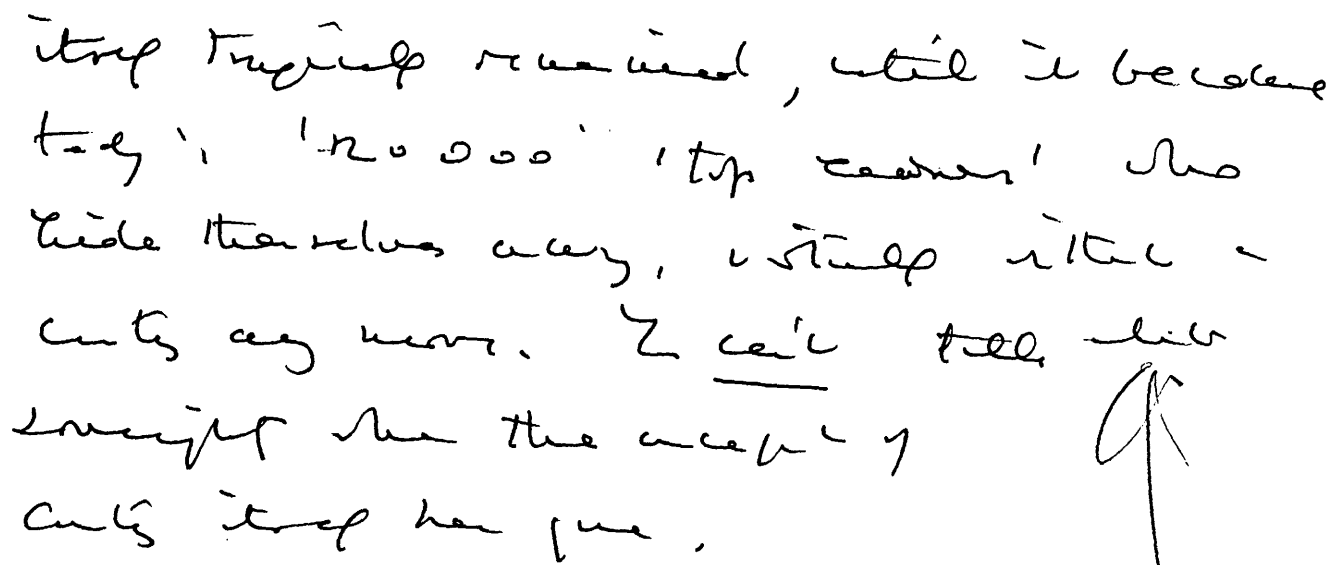 itself tragically remained, until it became
today's '120000' 'top earners' who
hide themselves away, virtually without a
country any more. I can't talk about
sovereignty when the concept of
country itself has gone.